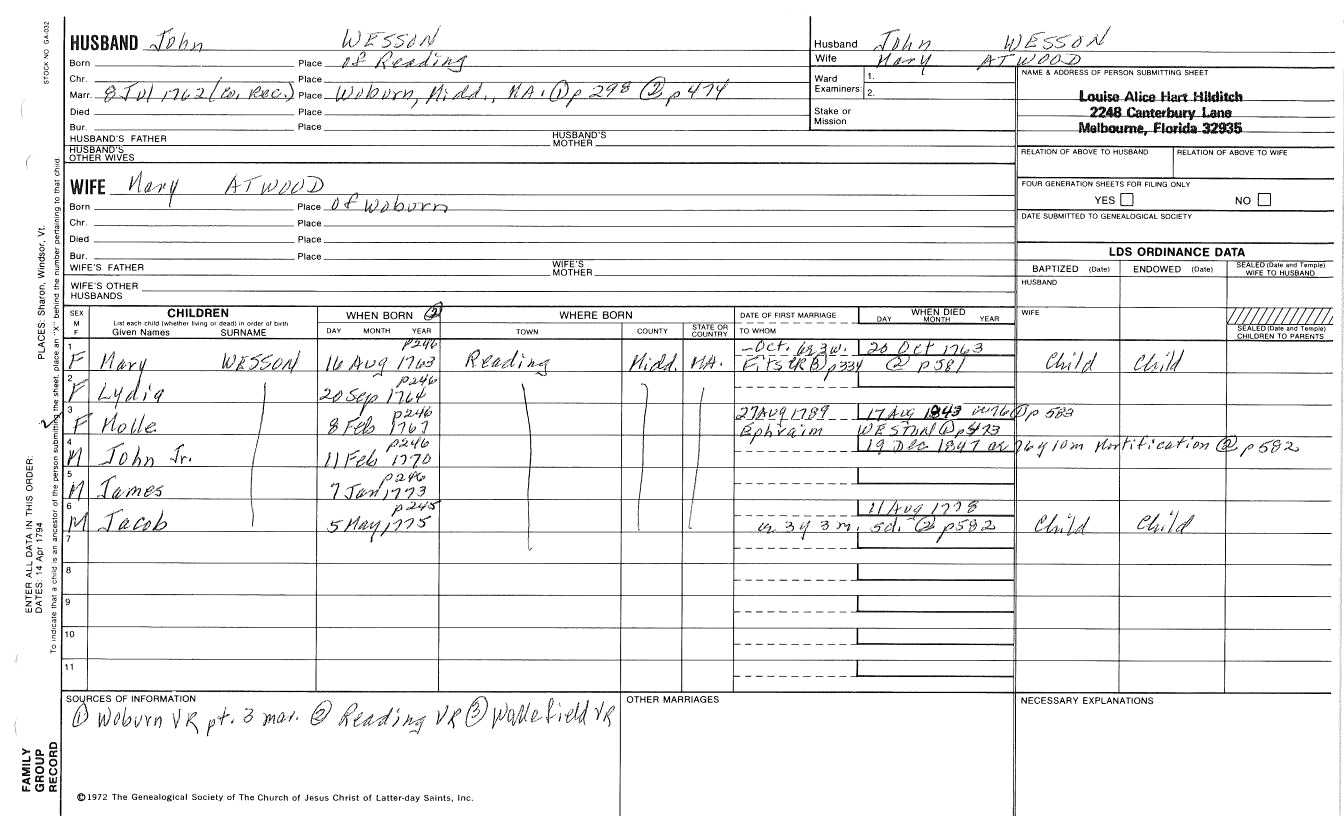 STOCK NO GA-032
HUSBAND John WESSON
Born Place of Reading
Chr. Place
Marr. 8 Jul 1762 (Co. Rec.) Place Woburn, Midd., MA. ① p 298 ② p 474
Died Place
Bur. Place
HUSBAND'S FATHER HUSBAND'S MOTHER
HUSBAND'S OTHER WIVES
Husband John WESSON
Wife Mary ATWOOD
Ward Examiners: 1. 2.
Stake or Mission
NAME & ADDRESS OF PERSON SUBMITTING SHEET
Louise Alice Hart Hilditch
2248 Canterbury Lane
Melbourne, Florida 32935
RELATION OF ABOVE TO HUSBAND RELATION OF ABOVE TO WIFE
FOUR GENERATION SHEETS FOR FILING ONLY
YES NO
DATE SUBMITTED TO GENEALOGICAL SOCIETY
WIFE Mary ATWOOD
Born Place of Woburn
Chr. Place
Died Place
Bur. Place
WIFE'S FATHER WIFE'S MOTHER
WIFE'S OTHER HUSBANDS
LDS ORDINANCE DATA
BAPTIZED (Date) ENDOWED (Date) SEALED (Date and Temple) WIFE TO HUSBAND
HUSBAND
WIFE
SEALED (Date and Temple) CHILDREN TO PARENTS
SEX M F
CHILDREN
List each child (whether living or dead) in order of birth
Given Names SURNAME
WHEN BORN ②
DAY MONTH YEAR
WHERE BORN
TOWN COUNTY STATE OR COUNTRY
DATE OF FIRST MARRIAGE
TO WHOM
WHEN DIED
DAY MONTH YEAR
1 p246 -Oct. 20 Oct 1763
F Mary WESSON 16 Aug 1763 Reading Midd. MA. p334 ② p 581 Child Child
2 p246
F Lydia 20 Sep 1764
3 p246 27 Aug 1789 17 Aug 1843 p 582
F Molle 8 Feb 1767 Ephraim WESTON ② p 473
4 p246 19 Dec 1847 ae 76y 10m Mortification ② p 582
M John Jr. 11 Feb 1770
5 p246
M James 7 Jan 1773
6 p245 11 Aug 1778
M Jacob 5 May 1775 3y 3m. 5d. ② p582 Child Child
7
8
9
10
11
SOURCES OF INFORMATION
① Woburn VR pt. 3 mar. ② Reading VR ③ Wakefield VR
OTHER MARRIAGES
NECESSARY EXPLANATIONS
©1972 The Genealogical Society of The Church of Jesus Christ of Latter-day Saints, Inc.
FAMILY GROUP RECORD
ENTER ALL DATA IN THIS ORDER:
DATES: 14 Apr 1794 PLACES: Sharon, Windsor, Vt.
To indicate that a child is an ancestor of the person submitting the sheet, place an "X" behind the number pertaining to that child